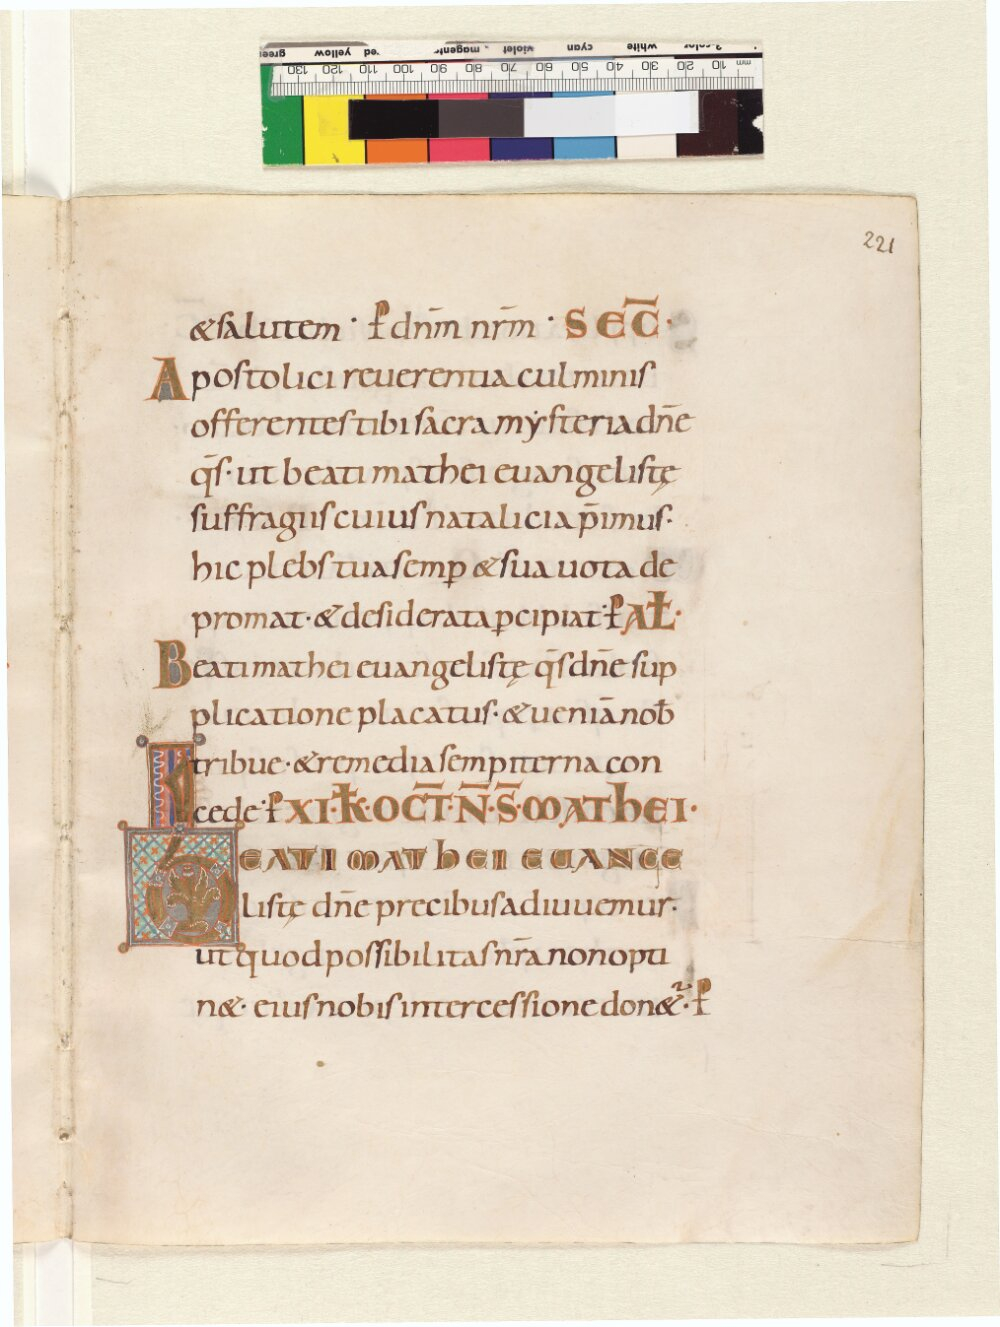 221
&salutem · ꝑ dnm̄ nrm̄ · SEC̄·
Apostolici reuerentia culminis
offerentes tibi sacra mẏsteria dn̄e
q̄s· ut beati mathei euangelistę
suffragiis cuius natalicia p̄imus·
hic plebs tua semꝑ & sua uota de
promat· & desiderata ꝑcipiat· ꝑ AŁ·
Beati mathei euangelistę q̄s dn̄e sup
plicatione placatus· & ueniā nob̄
tribue· & remedia sempiterna con
cede· ꝑ XI·K̄·OCT̄·N̄·S̄·MATHEI·
BEATI MATHEI EUANGE
listę dn̄e precibus adiuuemur·
ut quod possibilitas nr̄a non opti
n&· eius nobis intercessione don&ur· ꝑ